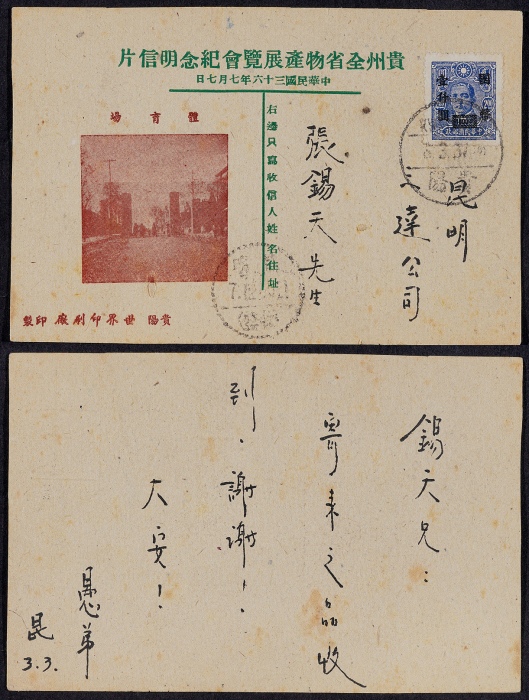 貴州全省物產展覽會紀念明信片
中華民國三十六年七月七日
體育場
右邊只寫收信人姓名住址
昆明
三達公司
張錫天先生
貴陽 世界印刷廠 印製
國幣
壹仟圓
中華民國郵政
錫天兄：
哥来之品收
到，謝謝！
大安！
愚弟
昆
3.3.